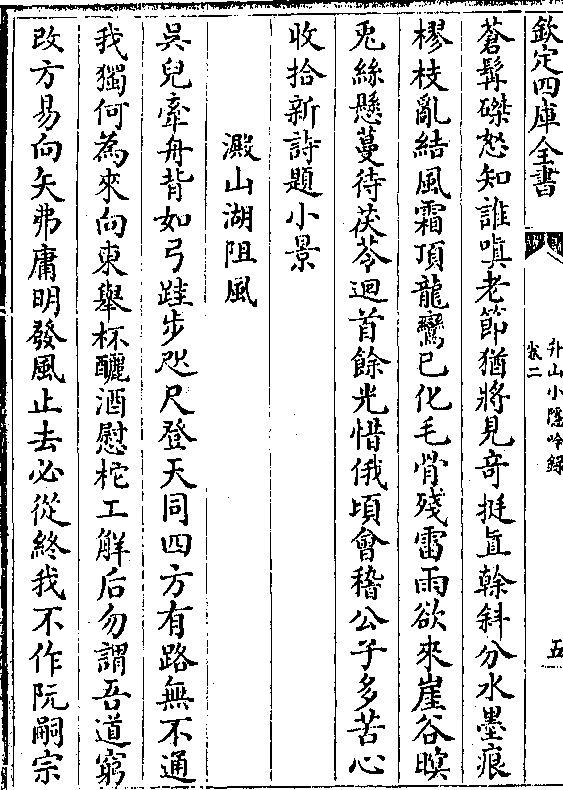 欽定四庫全書
外山小隱吟録
卷二
五
蒼髯磔怒知誰嗔老節猶將見竒挺直榦斜分水墨痕
樛枝亂結風霜頂龍鸞已化毛骨殘雷雨欲來崖谷暝
兎絲懸蔓待茯苓迴首餘光惜俄頃會稽公子多苦心
收拾新詩題小景
澱山湖阻風
吳兒牽舟背如弓跬步咫尺登天同四方有路無不通
我獨何為來向東舉杯釃酒慰柁工解后勿謂吾道窮
改方易向矢弗庸明發風止去必從終我不作阮嗣宗